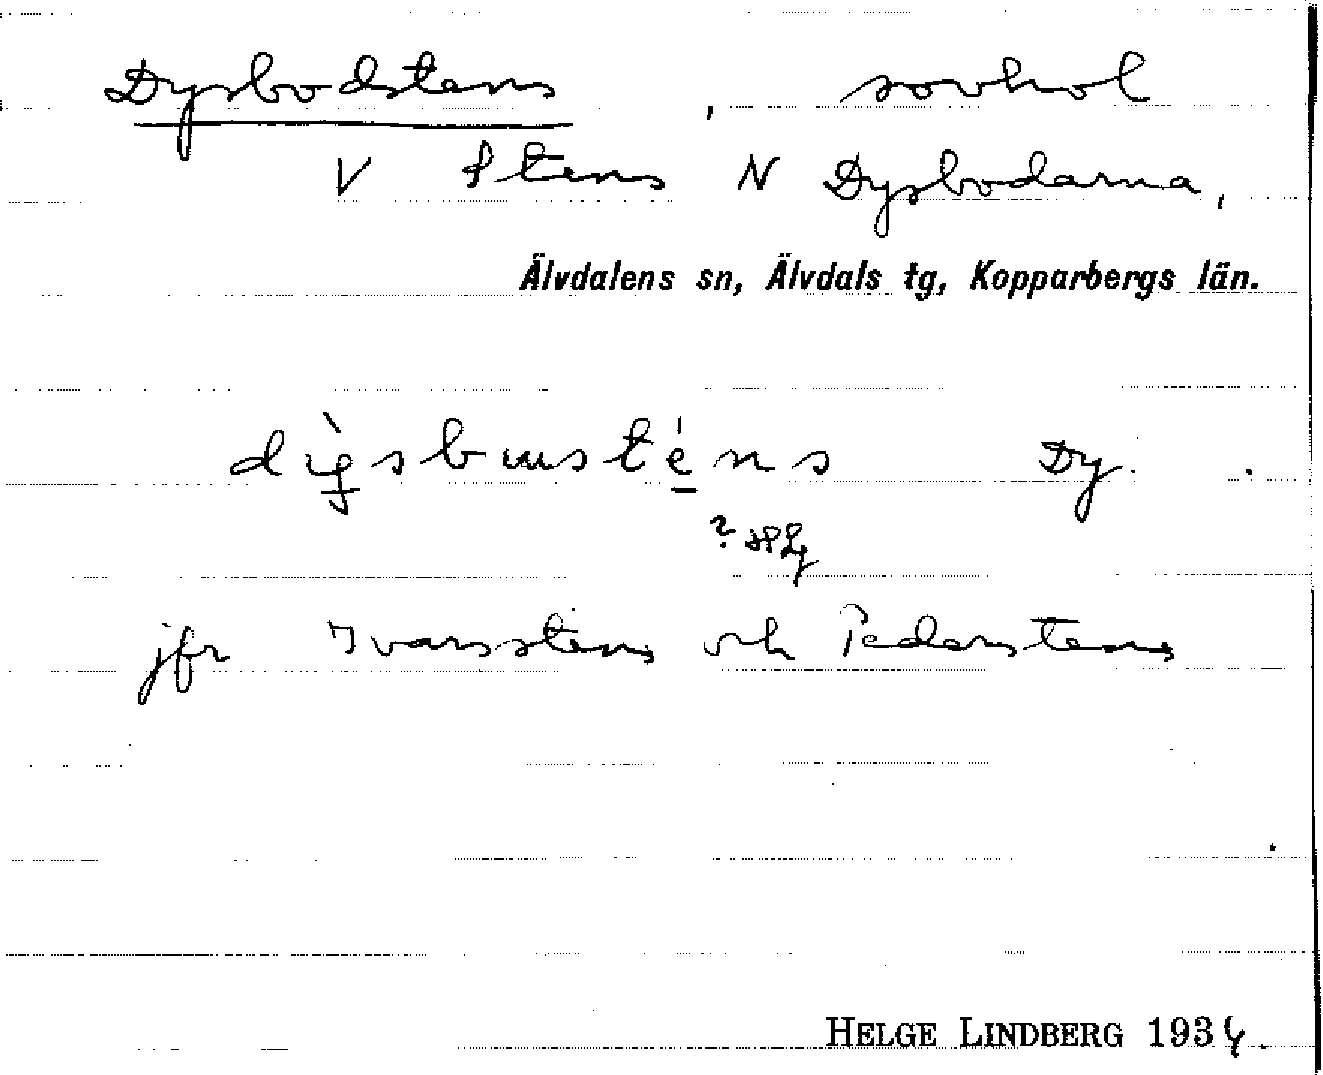 Dysbodstens, sovhol
V Stens N Dysbodarna,
Älvdalens sn, Älvdals tg, Kopparbergs län.
Dy.
?
jfr Ivarsstens och Pederstens
HELGE LINDBERG 1934.